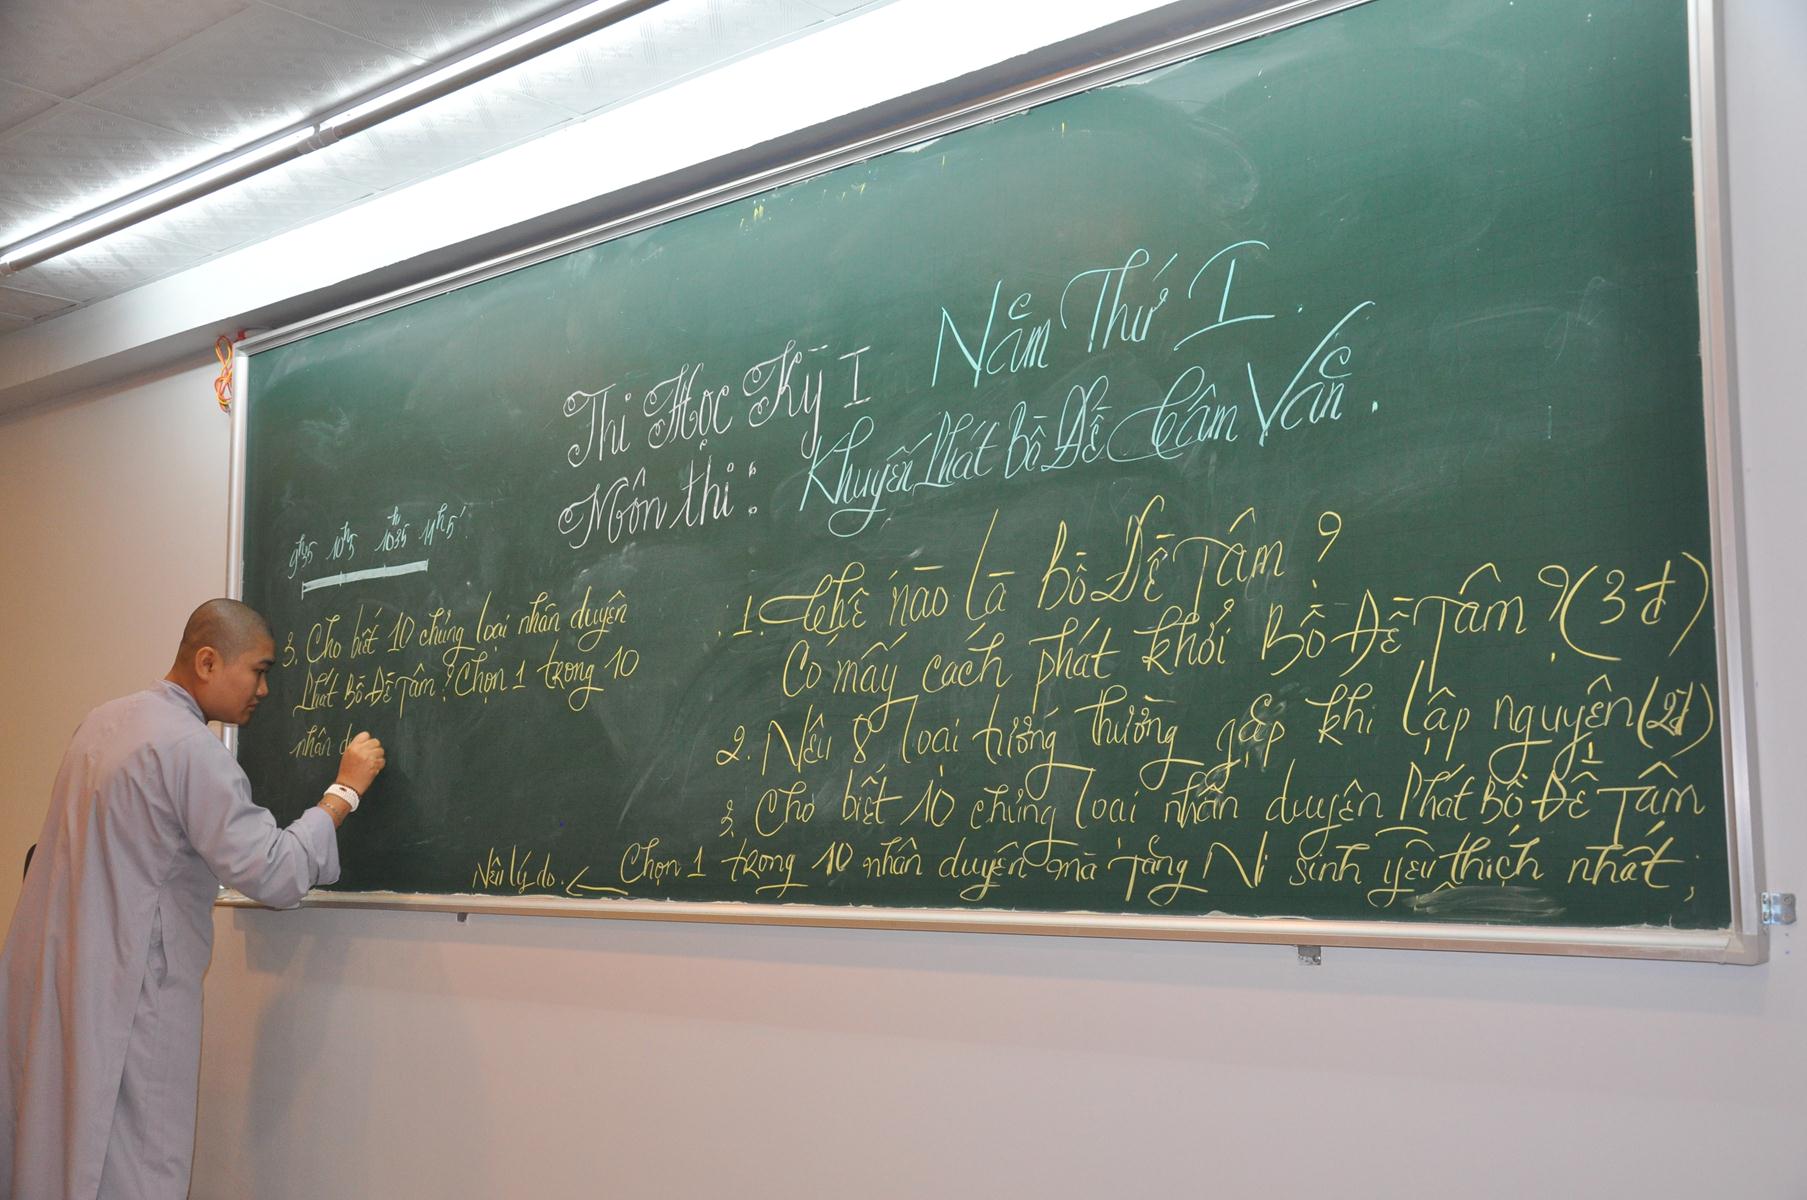 Thi Học Kỳ I Năm Thứ I.
Môn thi: Khuyến Phát Bồ Đề Tâm Văn.
9h35 10h5 10h35 11h5'
1. Thế nào là Bồ Đề Tâm?
Có mấy cách phát khởi Bồ Đề Tâm? (3đ)
2. Nêu 8 loại tướng thường gặp khi lập nguyện (2đ)
3. Cho biết 10 chủng loại nhân duyên Phát Bồ Đề Tâm
Chọn 1 trong 10 nhân duyên mà Tăng Ni sinh yêu thích nhất;
Nêu lý do.
3. Cho biết 10 chủng loại nhân duyên
Phát Bồ Đề Tâm? Chọn 1 trong 10
nhân d